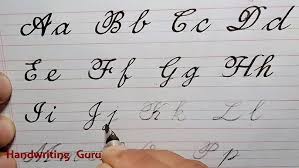 Aa Bb Cc Dd
Ee Ff Gg Hh
Ii Jj Kk Ll
Handwriting Guru
P p